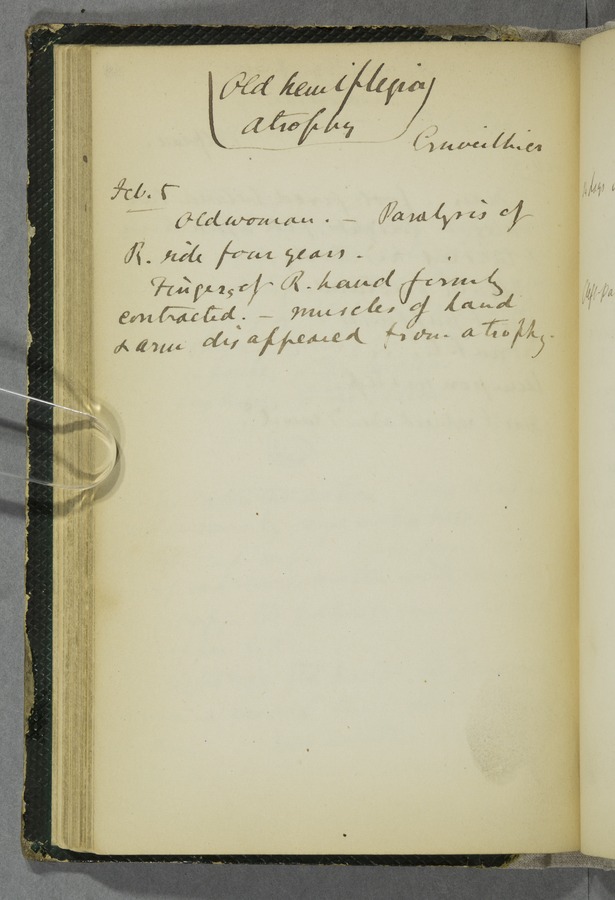 Old hemiplegia
atrophy
Cruveilhier
Feb. 5
Old woman. – Paralysis of
R. side four years.
Fingers of R. hand firmly
contracted. – muscles of hand
& arm disappeared from atrophy.